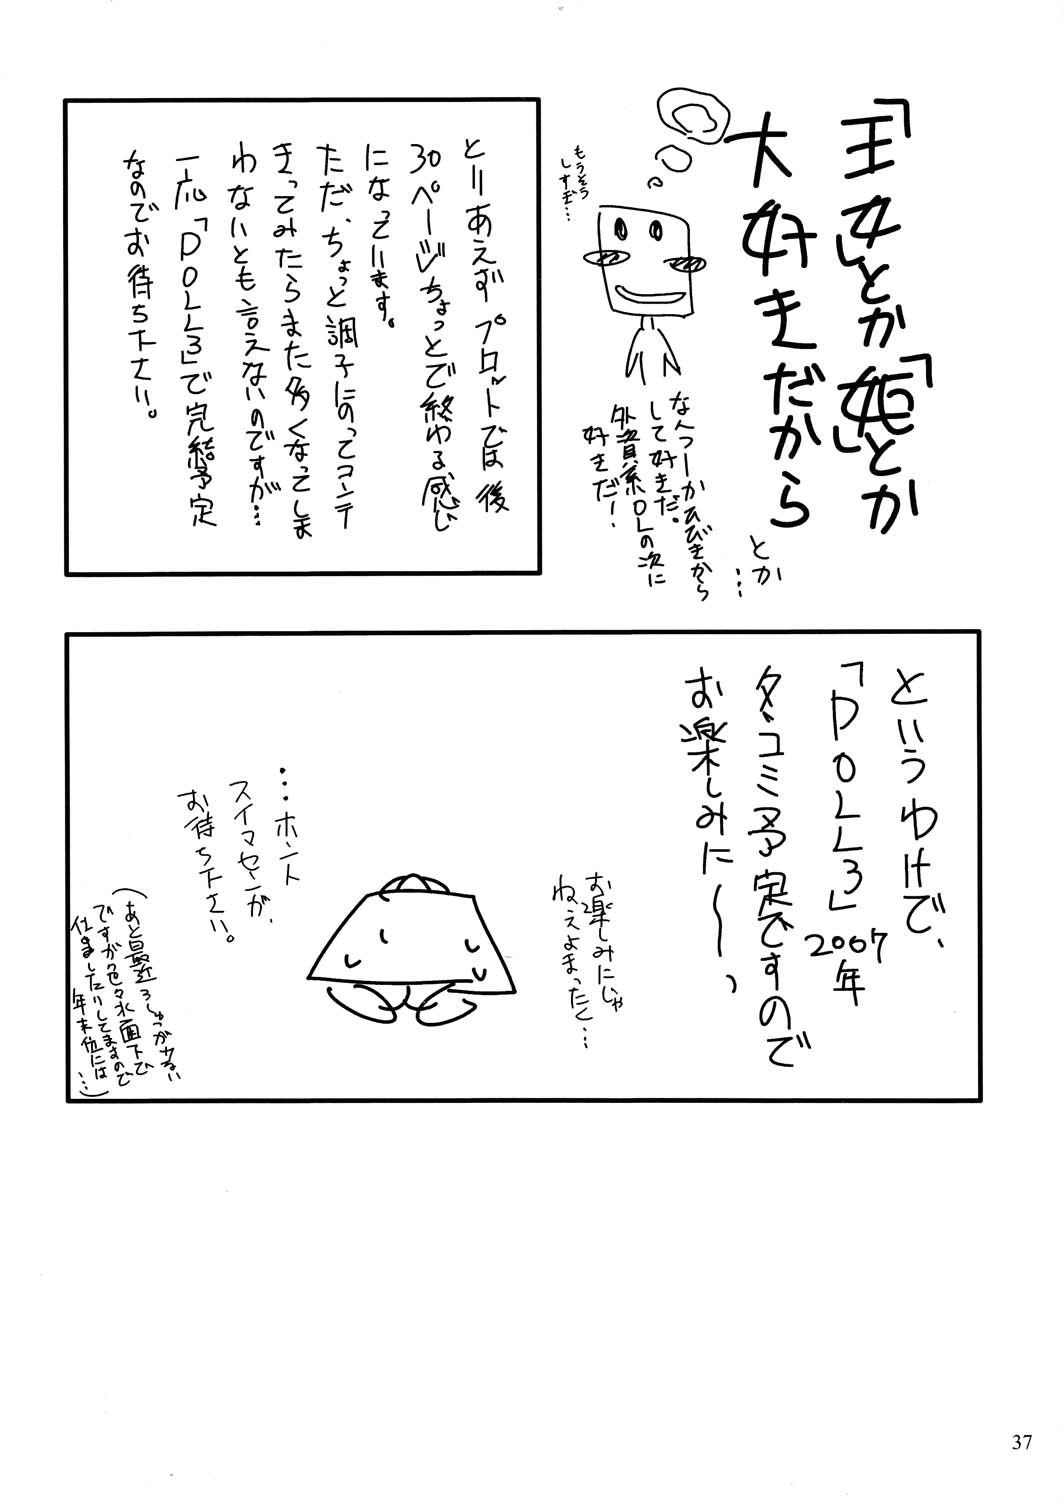 「王女」とか「姫」とか
大好きだから
とか
…
もうそう
しすぎ…
なんつーかひびきから
して好きだ。
外資系OLの次に
好きだー。
とりあえずプロットでは後
30ページちょっとで終わる感じ
になっています。
ただ、ちょっと調子にのってコンテ
きってみたらまた多くなってしま
わないとも言えないのですが…
一応「DOLL3」で完結予定
なのでお待ち下さい。
というわけで、
「DOLL3」2007年
夏コミ予定ですので
お楽しみに〜っ
お楽しみにじゃ
ねえよまったく…
…ホント
スイマセンが、
お待ち下さい。
(あと最近ろしゅつが少ない
ですが色々水面下で
仕事したりしてますので
年末位には
…)
37